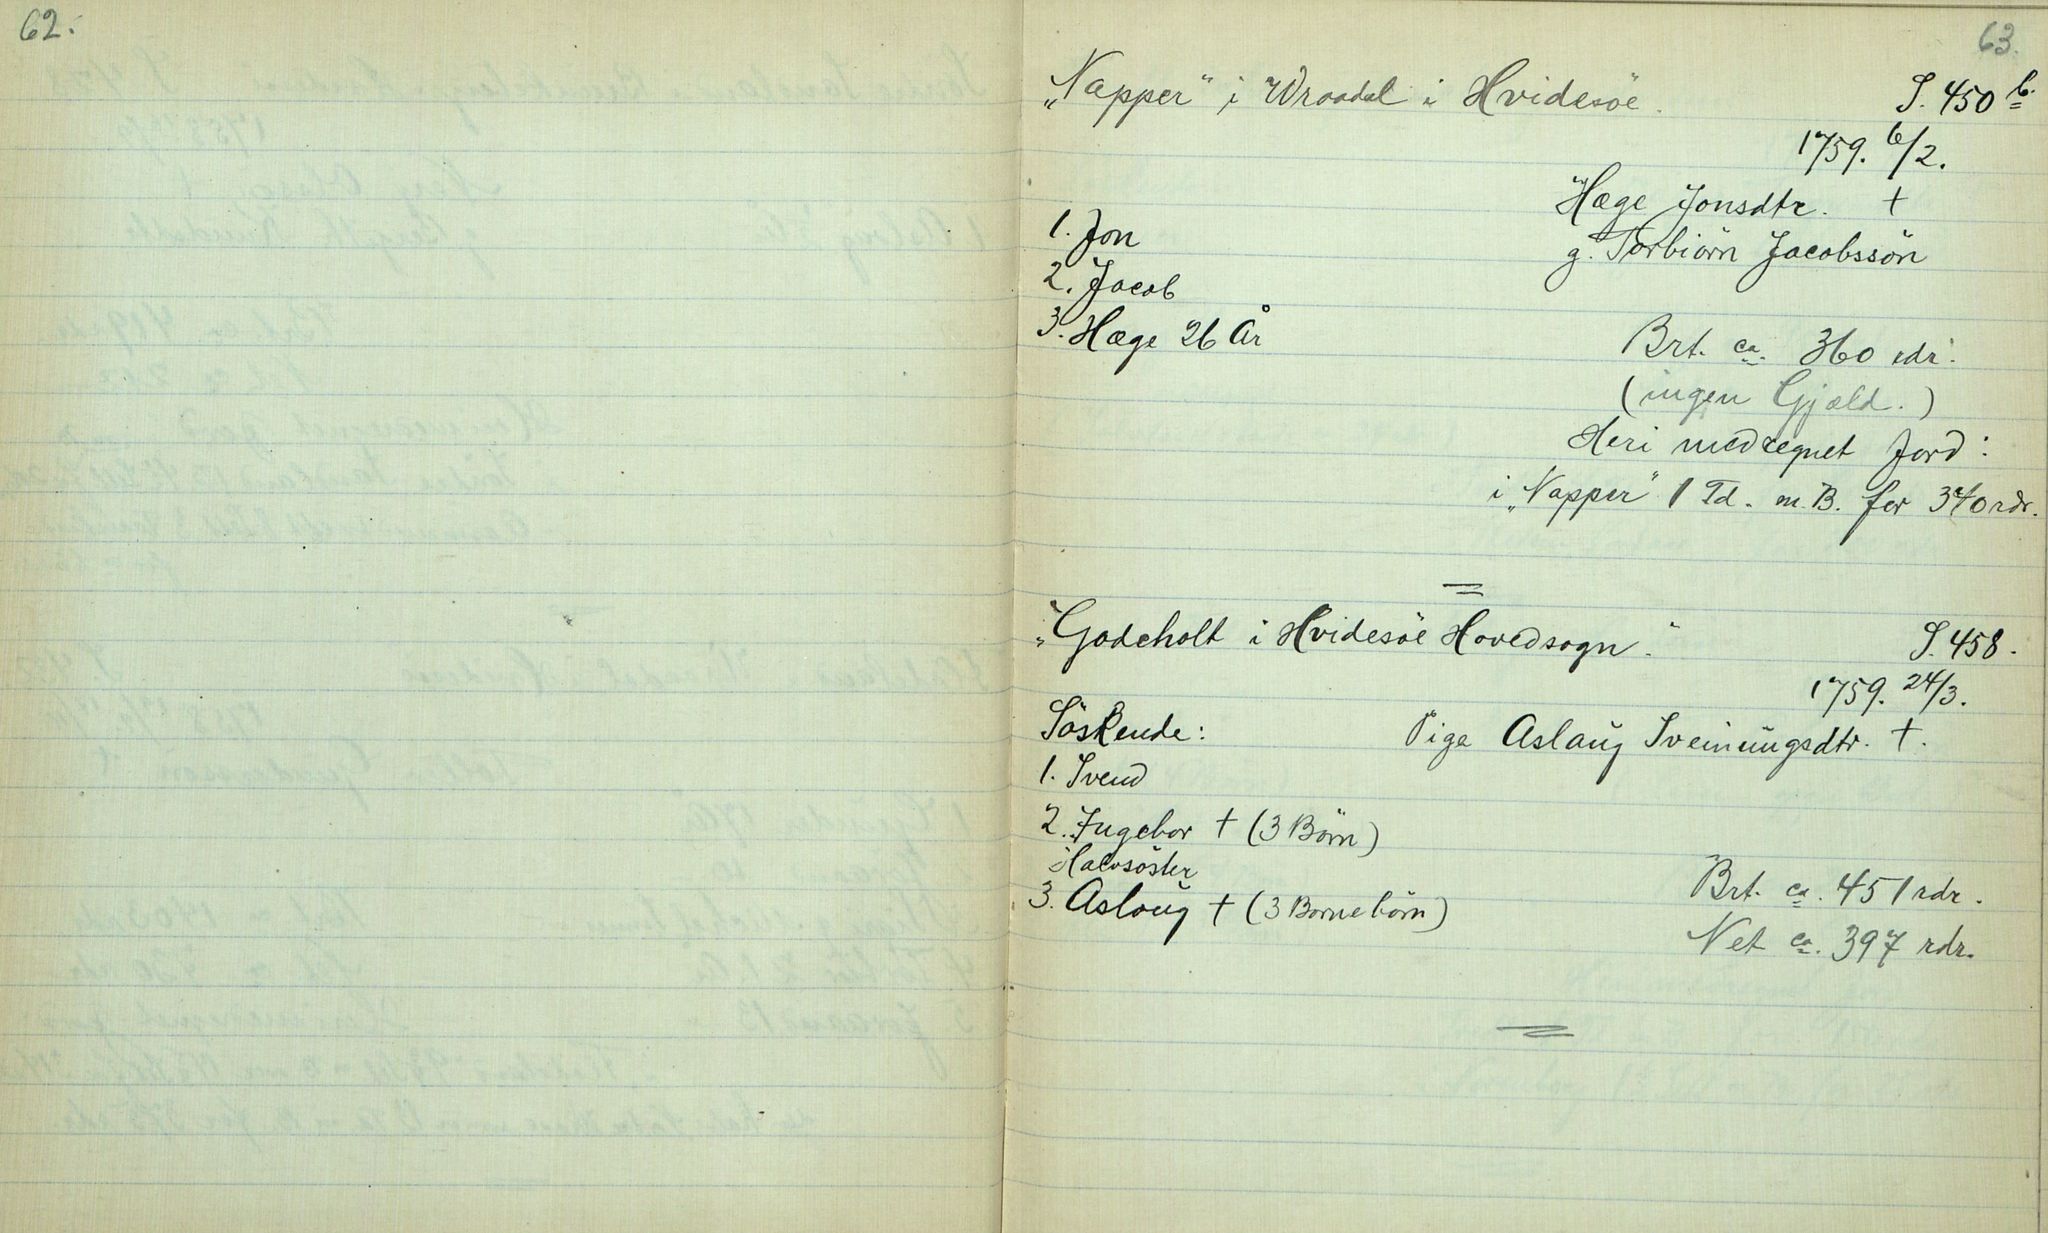 62.
63.
„Napper" i Wraadal i Hvidesöe.
S. 450 b.
1759. 6/2.
Hæge Jonsdtr. †
g. Torbiörn Jacobssön
1. Jon
2. Jacob
3. Hæge 26 År
Brt. ca. 360 rdr.
(ingen Gjæld.)
Heri medregnet Jord:
i „Napper" 1 Td. m. B. for 340 rdr.
„Godeholt i Hvidesöe Hovedsogn."
S. 458.
1759. 24/3.
Söskende:
Pige Aslaug Sveinungsdtr. †.
1. Svend
2. Ingebor † (3 Börn)
Halvsöster
3. Aslaug † (3 Bornebörn)
Brt. ca. 451 rdr.
Net ca. 397 rdr.